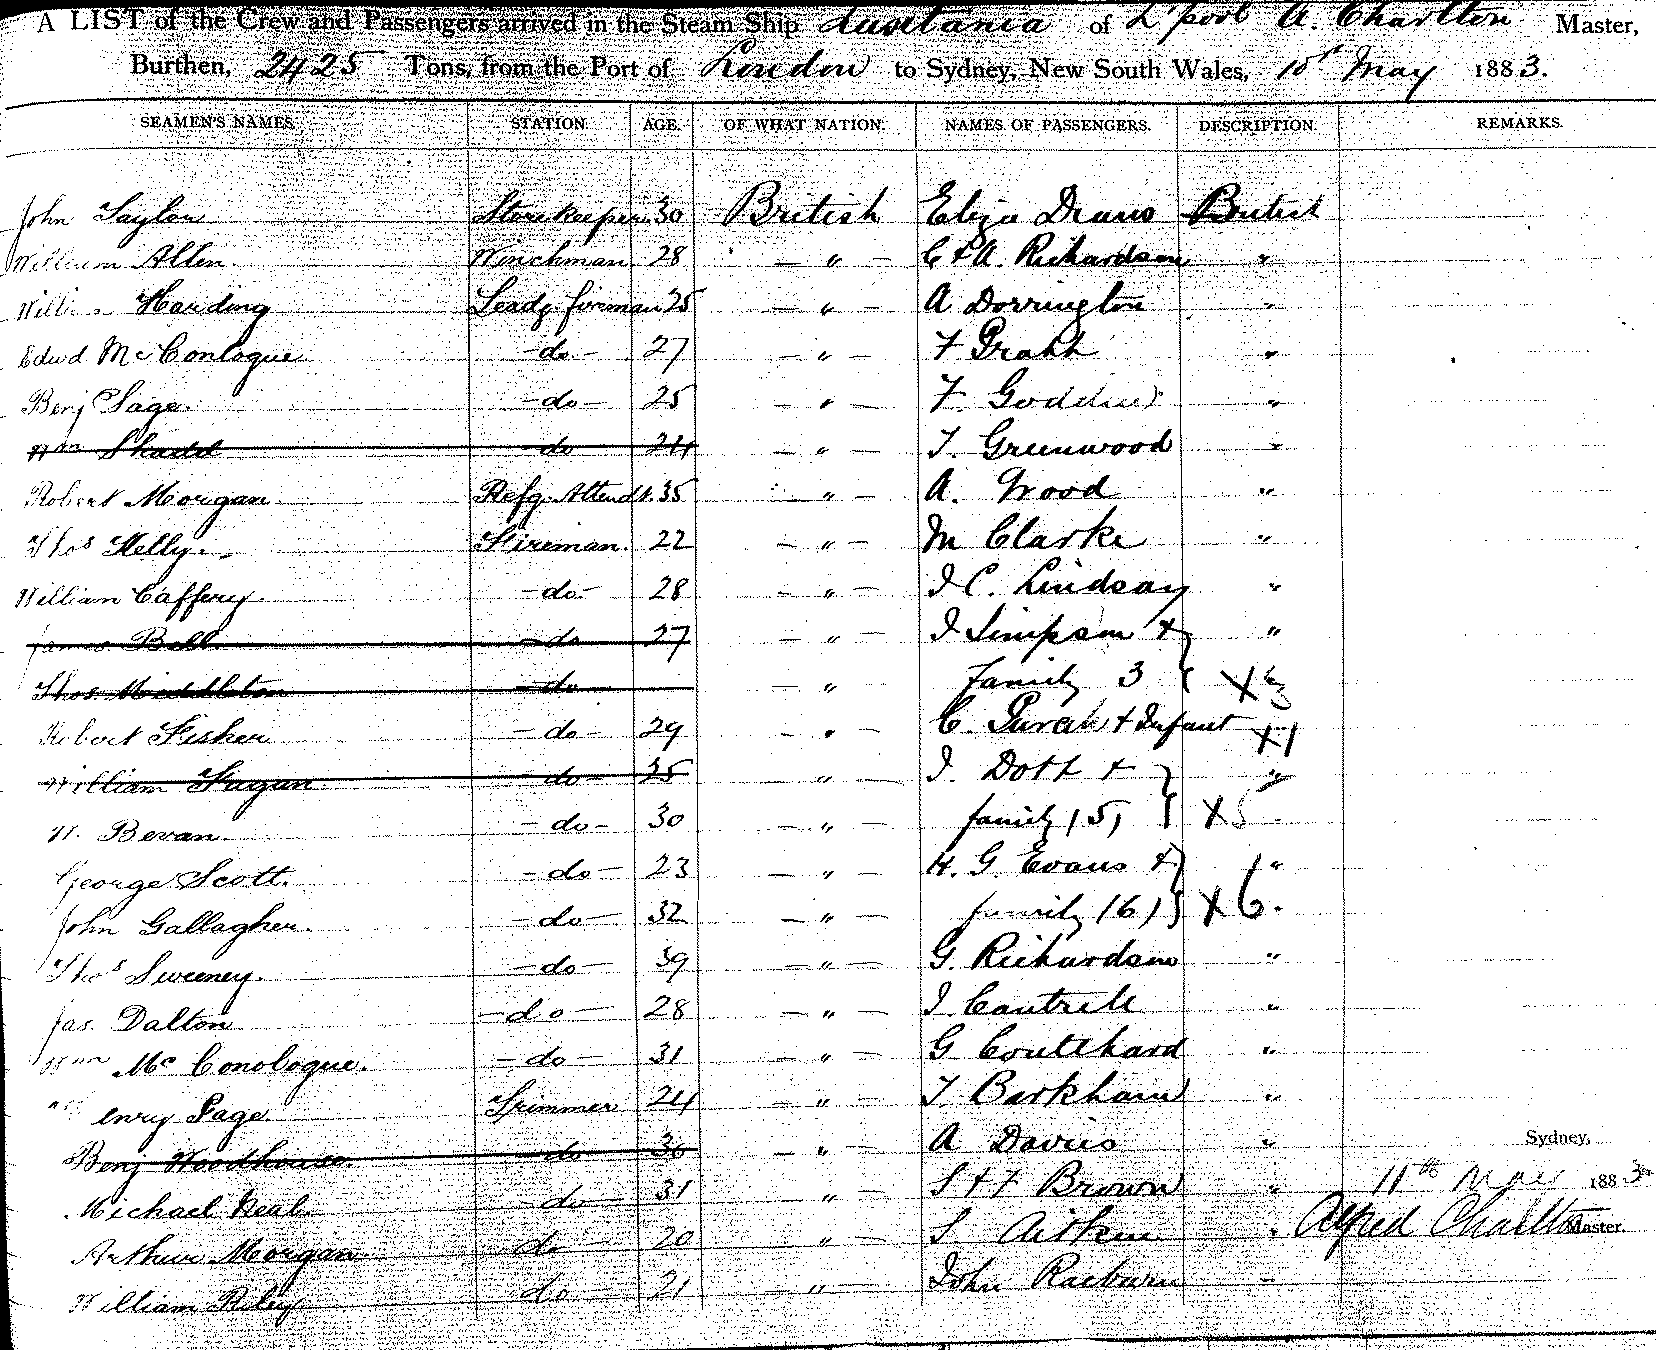 A LIST of the Crew and Passengers arrived in the Steam Ship Lusitania of L'pool A. Charlton Master,
Burthen, 2425 Tons, from the Port of London to Sydney, New South Wales, 10th May 1883.
SEAMEN'S NAMES. STATION. AGE. OF WHAT NATION. NAMES OF PASSENGERS. DESCRIPTION. REMARKS.
John Taylor Storekeeper 30 British Eliza British
William Allen. Winchman 28 — " — C & A. Richardson "
Harding Leadg fireman 25 — " — A Dorrington "
Edwd McConlogue — do — 27 — " — F "
Benj Sage. — do — 25 — " — F. "
Wm — do — 24 — " — T. Greenwood "
Robert Morgan Refg. Attendt. 35 — " — A. Wood "
Thos Kelly. Fireman. 22 — " — M Clarke "
William Caffery — do — 28 — " — J C. Lindsay "
James Bell — do — 27 — " — J Simpson & "
Thos Middleton — do — — " family 3 X 3
Robert Fisher — do — 29 — " — C. & Infant X1
William Fagan — do — 35 " — J. Dott & "
Bevan. — do — 30 — " — family (5) X5
George Scott. — do — 23 — " — H. G Evans & "
John Gallagher. — do — 32 — " — family (6) X 6.
Thos Sweeney. — do — 39 — " — G. Richardson "
Jas. Dalton — do — 28 — " — J Cantrell "
Wm McConologue. — do — 31 — " — G Coulthard "
enry Page Trimmer 24 — " — T Barkham "
Benj Woodhouse. — do — 36 — " — A Davies "
Sydney,
Michael Neal. — do — 31 — " — S & F Brown " 11th May 1883
Arthur Morgan. do 20 " — S Aitken " Alfred Charlton Master.
William Riley do 21 — " — John Raeburn "